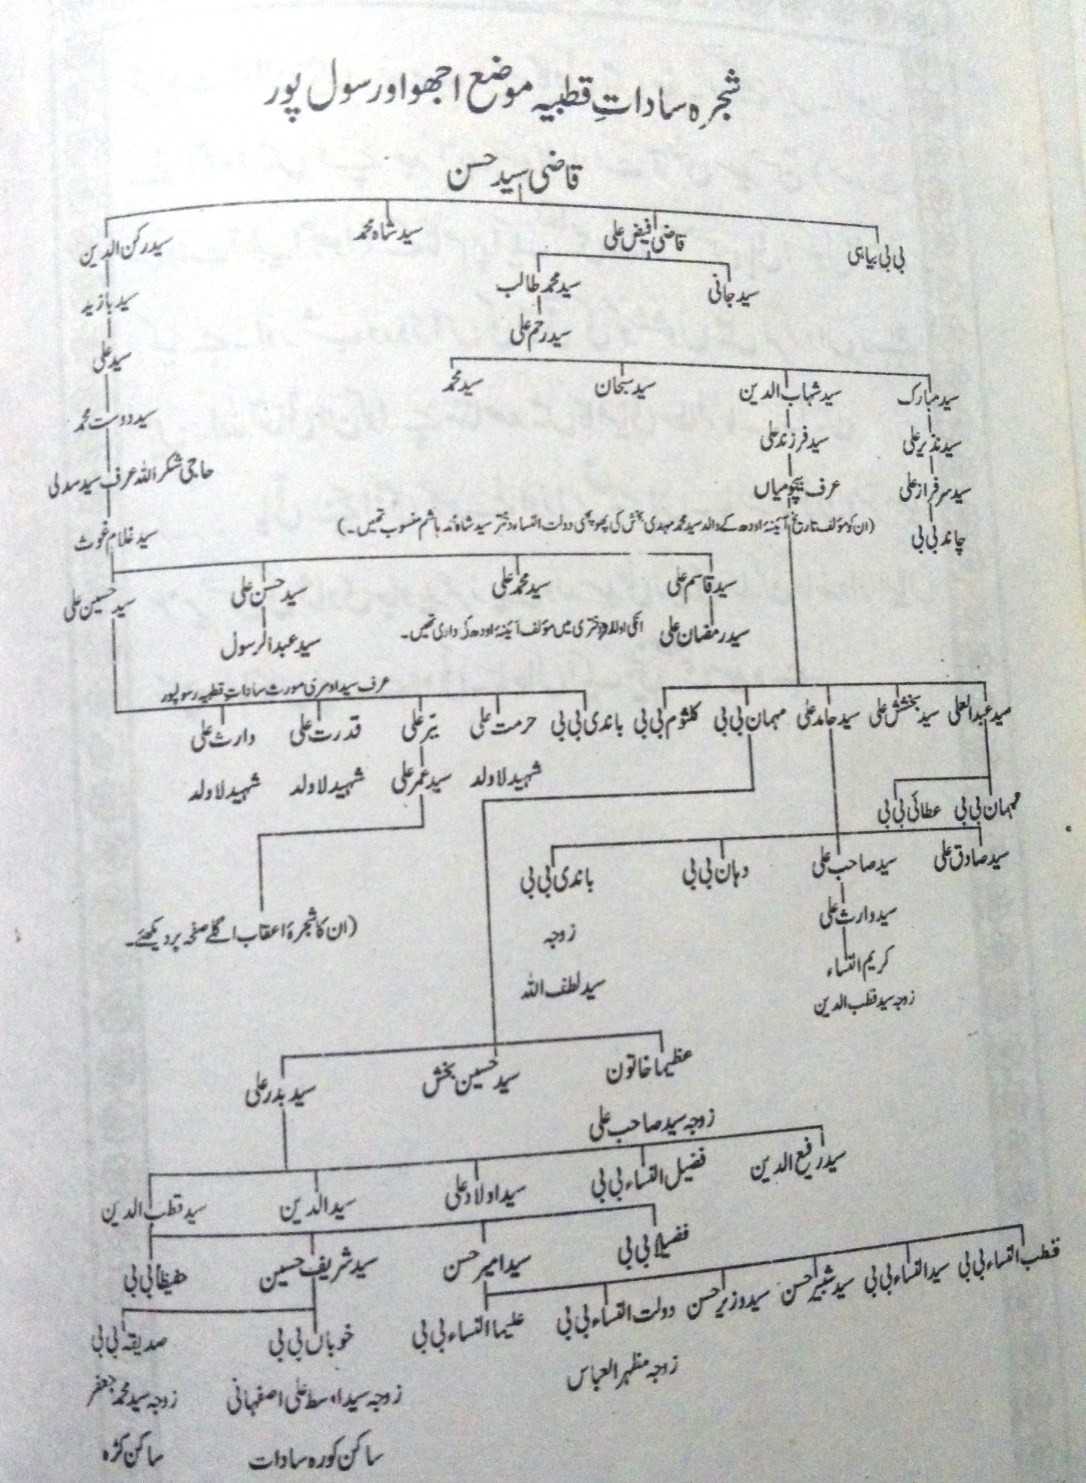 شجرہ ساداتِ قطبیہ موضع اجھو اور سول پور
قاضی سید حسن
بی بی بیاہی
قاضی فیض علی
سید شاہ محمد
سید رکن الدین
سید جانی
سید محمد طالب
سید بازید
سید رحم علی
سید علی
سید مبارک
سید شہاب الدین
سید سبحان
سید محمد
سید دوست محمد
سید نذیر علی
سید فرزند علی
حاجی شکر اللہ عرف سید سدلی
سید سرفراز علی
عرف بچو میاں
چاند بی بی
(ان کو مؤلف تاریخ آئینۂ اودھ کے والد سید محمد مہدی بخش کی پھوپھی دولت النساء دختر سید شاہ محمد ہاشم منسوب تھیں۔)
سید غلام غوث
سید قاسم علی
سید محمد علی
سید حسن علی
سید حسین علی
سید رمضان علی
انکی اولاد دختری میں مؤلف آئینۂ اودھ کی دادی تھیں۔
سید عبدالرسول
عرف سید اومری مورث سادات قطبیہ رسولپور
سید عبدالعلی
سید بخشش علی
سید حامد علی
مہمان بی بی
کلثوم بی بی
باندی بی بی
حرمت علی
ببر علی
قدرت علی
وارث علی
شہید لا ولد
سید عمر علی
شہید لا ولد
شہید لا ولد
مہمان بی بی
عطائی بی بی
سید صادق علی
سید صاحب علی
دہان بی بی
باندی بی بی
سید وارث علی
زوجہ
(ان کا شجرۂ اعقاب اگلے صفحہ پر دیکھئے۔
کریم النساء
سید لطف اللہ
زوجہ سید قطب الدین
عظیما خاتون
سید حسین بخش
سید بدر علی
زوجہ سید صاحب علی
سید رفیع الدین
فضیل النساء بی بی
سید اولاد علی
سید الدین
سید قطب الدین
فضیلا بی بی
سید امیر حسن
سید شریف حسین
حفیظا بی بی
قطب النساء بی بی
سید النساء بی بی
سید شبیر حسن
سید وزیر حسن
دولت النساء بی بی
علیما النساء بی بی
خوباں بی بی
صدیقہ بی بی
زوجہ مظہر العباس
زوجہ سید اوسط علی اصفہانی
زوجہ سید محمد جعفر
ساکن کورہ سادات
ساکن کڑہ